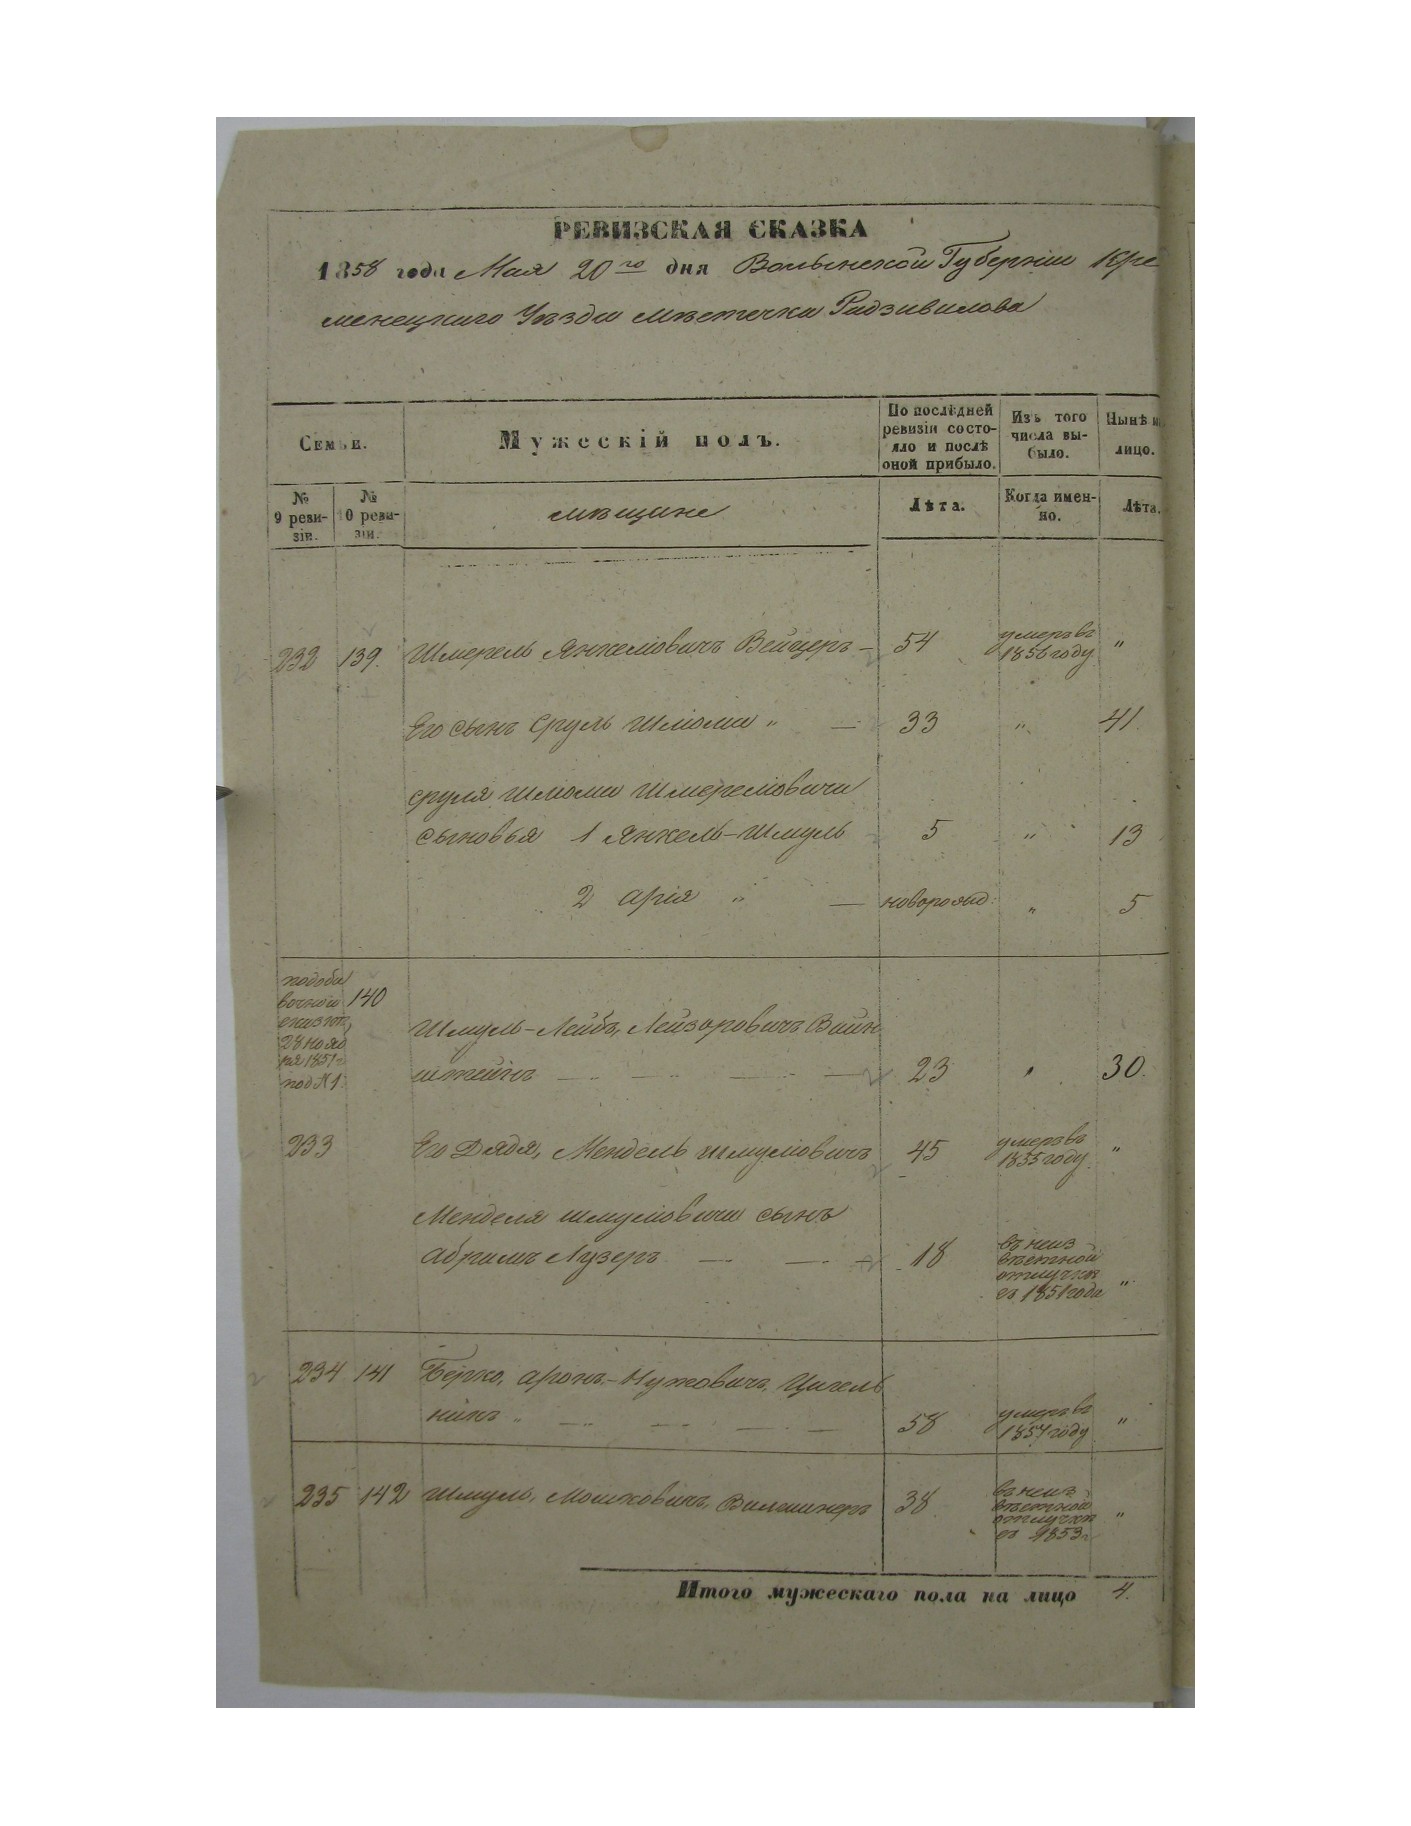 РЕВИЗСКАЯ СКАЗКА
1858 года Мая 20го дня Волынской Губерніи Кре
менецкаго Уѣзда мѣстечка Радзивилова
Семьи.
Мужескій полъ.
По послѣдней ревизіи состояло и послѣ оной прибыло.
Изъ того числа выбыло.
Нынѣ на лицо.
№ 9 ревизіи.
№ 10 ревизіи.
мѣщане
Лѣта.
Когда именно.
Лѣта.
232 139. Шмерель Янкеловичъ Вейцеръ — 54 умеръ въ 1856 году "
Его сынъ Сруль Шлиома " — 33 " 41.
Сруля Шлиомы Шмерелиовича
сыновья 1 Янкель-Шмуль 5 " 13
2 Арія " — новорожд: " 5
подоба
вочной
сказкѣ
28 нояб
ря 1851 г
под №1.
140
Шмуль-Лейбъ, Лейзоровичъ Вайн
штейнъ — 23 " 30.
233 Его Дядя, Мендель Шмулиовичъ 45 умеръ въ 1855 году. "
Менделя Шмулиовича сынъ
Абрамъ Лузеръ — 18 въ неиз
вѣстной
отлучкѣ
съ 1851 года "
234 141 Берко, Аронъ-Нутовичъ, Цигель
никъ " — 58 умеръ въ 1857 году "
235 142 Шмуль, Мошковичъ, Вильшинеръ 38 въ неиз
вѣстной
отлучкѣ
съ 1853 г "
Итого мужескаго пола на лицо 4.